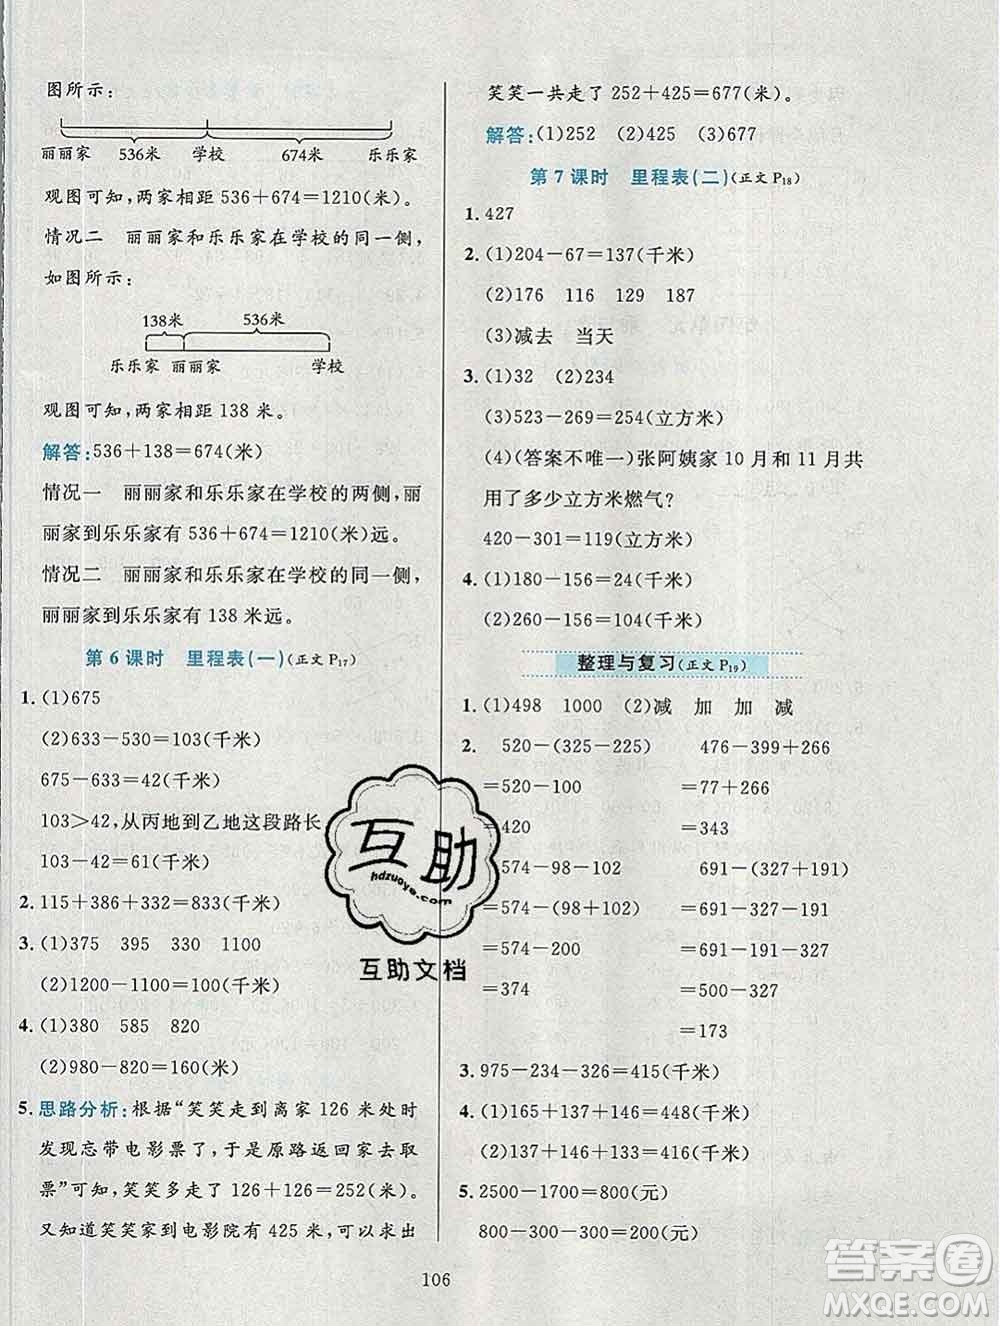 图所示:
丽丽家 536米 学校 674米 乐乐家
观图可知,两家相距 536+674=1210(米)。
情况二 丽丽家和乐乐家在学校的同一侧,
如图所示:
138米 536米
乐乐家 丽丽家 学校
观图可知,两家相距 138 米。
解答:536+138=674(米)
情况一 丽丽家和乐乐家在学校的两侧,丽
丽家到乐乐家有 536+674=1210(米)远。
情况二 丽丽家和乐乐家在学校的同一侧,
丽丽家到乐乐家有 138 米远。
第 6 课时 里程表(一)(正文 P17)
1. (1)675
(2)633-530=103(千米)
675-633=42(千米)
103>42,从丙地到乙地这段路长
103-42=61(千米)
2. 115+386+332=833(千米)
3. (1)375 395 330 1100
(2)1200-1100=100(千米)
4. (1)380 585 820
(2)980-820=160(米)
5. 思路分析:根据“笑笑走到离家 126 米处时
发现忘带电影票了,于是原路返回家去取
票”可知,笑笑多走了 126+126=252(米)。
又知道笑笑家到电影院有 425 米,可以求出
笑笑一共走了 252+425=677(米)。
解答:(1)252 (2)425 (3)677
第 7 课时 里程表(二)(正文 P18)
1. 427
2. (1)204-67=137(千米)
(2)176 116 129 187
(3)减去 当天
3. (1)32 (2)234
(3)523-269=254(立方米)
(4)(答案不唯一)张阿姨家 10 月和 11 月共
用了多少立方米燃气?
420-301=119(立方米)
4. (1)180-156=24(千米)
(2)260-156=104(千米)
整理与复习(正文 P19)
1. (1)498 1000 (2)减 加 加 减
2. 520-(325-225) 476-399+266
=520-100 =77+266
=420 =343
574-98-102 691-(327+191)
=574-(98+102) =691-327-191
=574-200 =691-191-327
=374 =500-327
=173
3. 975-234-326=415(千米)
4. (1)165+137+146=448(千米)
(2)137+146+171=454(千米)
5. 2500-1700=800(元)
800-300-300=200(元)
106
互助
hdzuoye.com
互助文档
答案圈
MXQE.COM